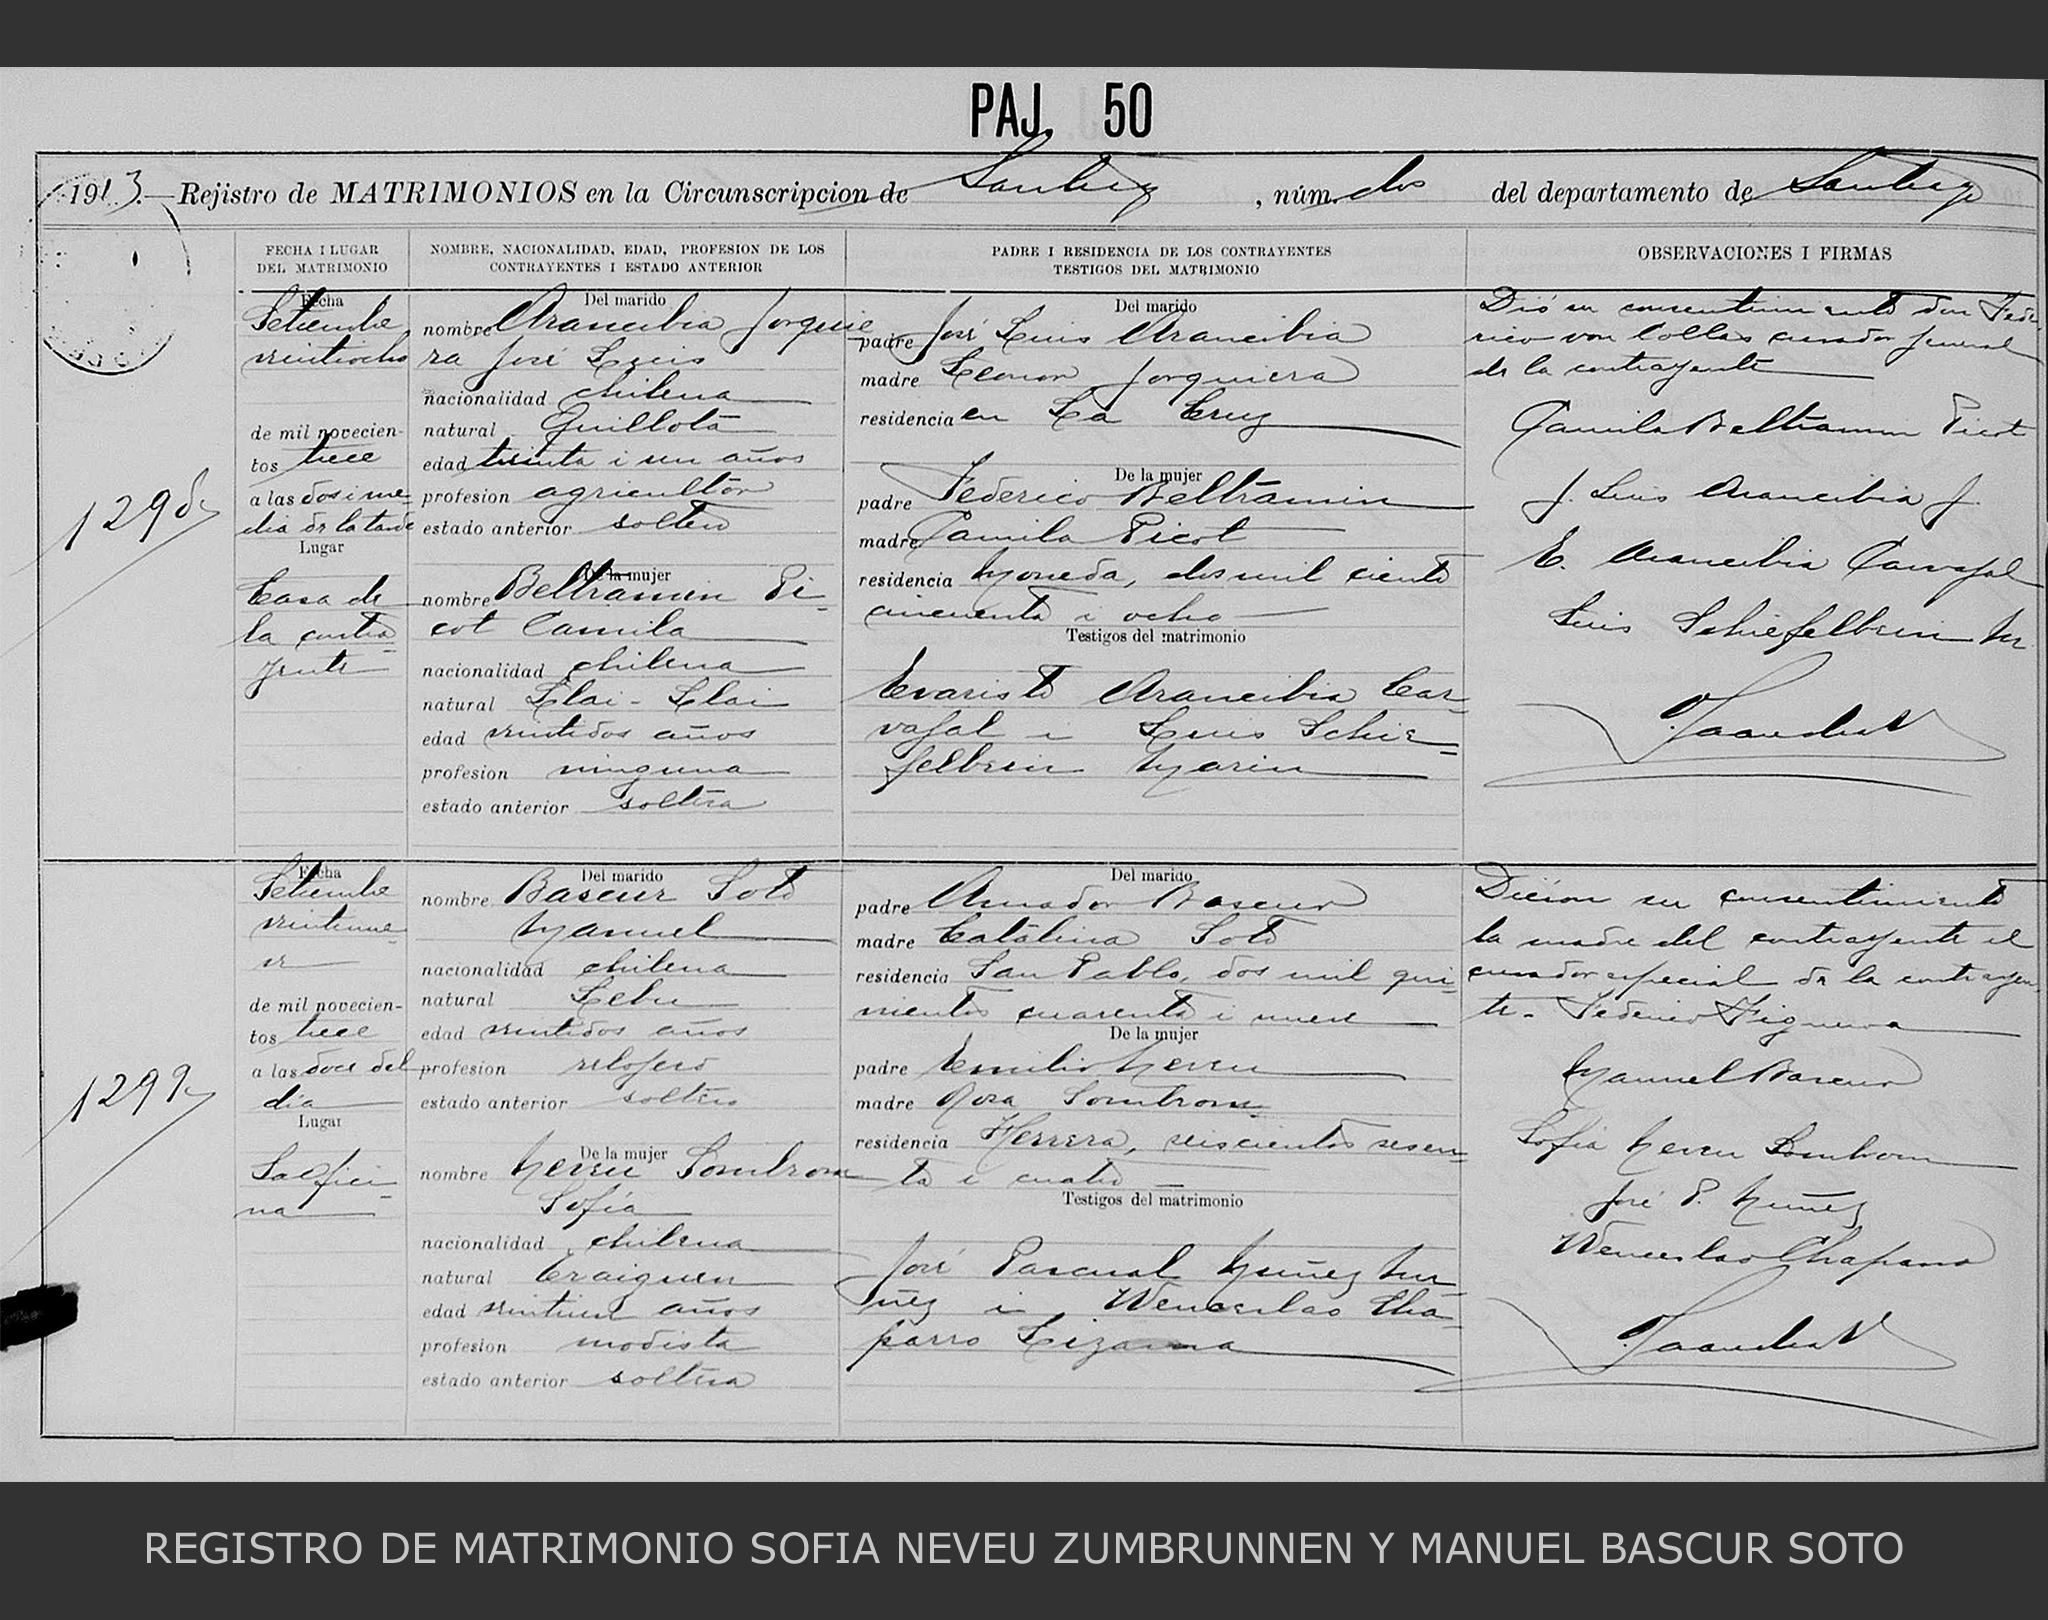 PAJ. 50
1913.— Rejistro de MATRIMONIOS en la Circunscripcion de Santiago, núm. dos del departamento de Santiago
FECHA I LUGAR
DEL MATRIMONIO
NOMBRE, NACIONALIDAD, EDAD, PROFESION DE LOS
CONTRAYENTES I ESTADO ANTERIOR
PADRE I RESIDENCIA DE LOS CONTRAYENTES
TESTIGOS DEL MATRIMONIO
OBSERVACIONES I FIRMAS
1298
Fecha
Setiembre
veintiocho
de mil novecien-
tos trece
a las dos i me-
dia de la tarde
Lugar
Casa de
la contra-
yente
Del marido
nombre Arancibia Jorquie-
ra José Luis
nacionalidad chilena
natural Quillota
edad treinta i un años
profesion agricultor
estado anterior soltero
De la mujer
nombre Beltramin Pi-
cot Camila
nacionalidad chilena
natural Llai-Llai
edad veintidos años
profesion ninguna
estado anterior soltera
Del marido
padre José Luis Arancibia
madre Leonor Jorquiera
residencia en La Cruz
De la mujer
padre Federico Beltramin
madre Camila Picot
residencia Moneda, dos mil ciento
cincuenta i ocho
Testigos del matrimonio
Evaristo Arancibia Car-
vajal i Luis Schie-
felbein Marin
Dió su consentimiento don Fede-
rico von Collas curador jeneral
de la contrayente
Camila Beltramin Picot
J. Luis Arancibia J.
E. Arancibia Carvajal
Luis Schiefelbein M.
1299
Fecha
Setiembre
veintinue-
ve
de mil novecien-
tos trece
a las doce del
dia
Lugar
La ofici-
na
Del marido
nombre Bascur Soto
Manuel
nacionalidad chilena
natural Lebu
edad veintidos años
profesion relojero
estado anterior soltero
De la mujer
nombre Neveu Sombrom
Sofia
nacionalidad chilena
natural Traiguen
edad veintiun años
profesion modista
estado anterior soltera
Del marido
padre Amador Bascur
madre Catalina Soto
residencia San Pablo, dos mil qui-
nientos cuarenta i nueve
De la mujer
padre Emilio Neveu
madre Rosa Sombrom
residencia Herrera, seiscientos sesen-
ta i cuatro
Testigos del matrimonio
José Pascual Nuñez Nu-
ñez i Wenceslao Cha-
parro Lizama
Dieron su consentimiento
la madre del contrayente el
curador especial de la contrayen-
te. Federico Figueroa
Manuel Bascur
Sofia Neveu Sombrom
José P. Nuñez
Wenceslao Chaparro
REGISTRO DE MATRIMONIO SOFIA NEVEU ZUMBRUNNEN Y MANUEL BASCUR SOTO